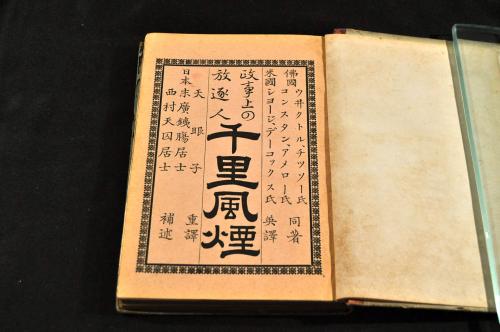 ウ井クトル、チツソー氏
佛國コンスタン、アメロー氏 同著
米國ジヨージ、デーコックス氏 英譯
政事上の
放逐人
千里風煙
天眼子 重譯
日本末廣鐵膓居士
西村天囚居士 補述